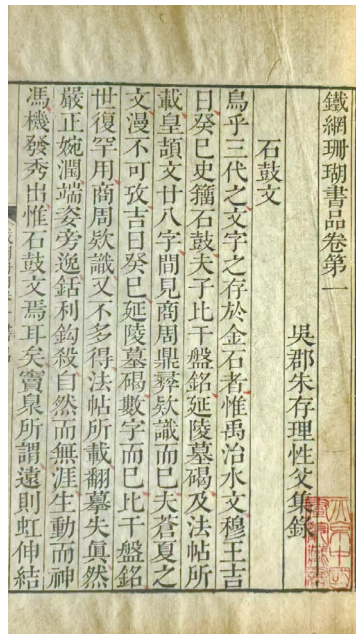 鐵網珊瑚書品卷第一
吳郡朱存理性父集錄
石鼓文
烏乎三代之文字之存於金石者惟禹治水文穆王吉
日癸巳史籀石鼓夫子比干盤銘延陵墓碣及法帖所
載皇頡文廿八字間見商周鼎彝欵識而巳夫蒼夏之
文漫不可攷吉日癸巳延陵墓碣數字而巳比干盤銘
世復罕用商周欵識又不多得法帖所載翻摹失眞然
嚴正婉潤端姿旁逸銛利鈎殺自然而無涯生動而神
馮機發秀出惟石鼓文焉耳矣竇泉所謂遠則虹伸結